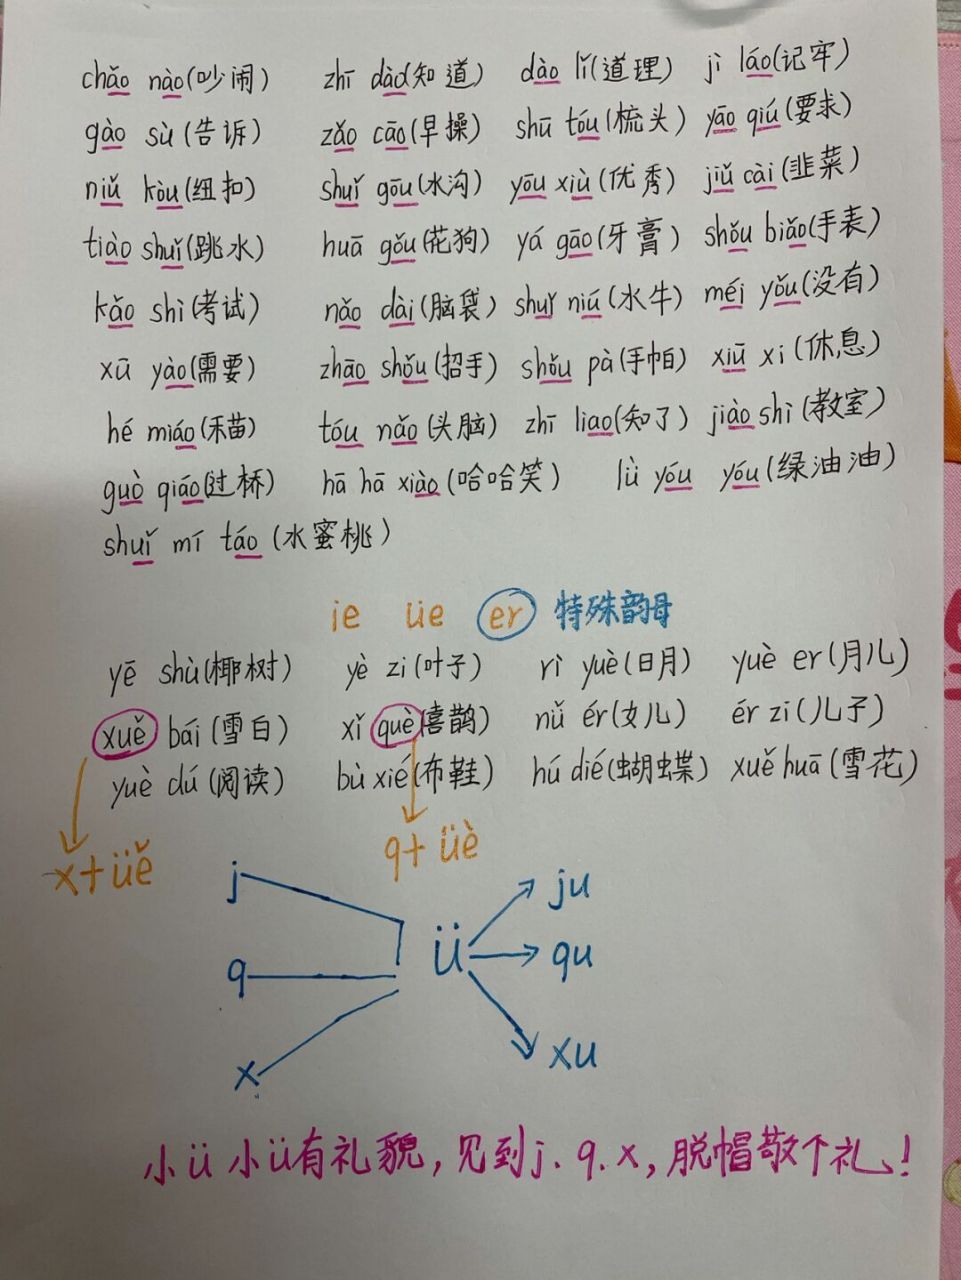 chǎo nào(吵闹) zhī dào(知道) dào lǐ(道理) jì láo(记牢)
gào sù(告诉) zǎo cāo(早操) shū tóu(梳头) yāo qiú(要求)
niǔ kòu(纽扣) shuǐ gōu(水沟) yōu xiù(优秀) jiǔ cài(韭菜)
tiào shuǐ(跳水) huā gǒu(花狗) yá gāo(牙膏) shǒu biǎo(手表)
kǎo shì(考试) nǎo dài(脑袋) shuǐ niú(水牛) méi yǒu(没有)
xū yào(需要) zhāo shǒu(招手) shǒu pà(手帕) xiū xi(休息)
hé miáo(禾苗) tóu nǎo(头脑) zhī liao(知了) jiào shì(教室)
guò qiáo(过桥) hā hā xiào(哈哈笑) lǜ yóu yóu(绿油油)
shuǐ mí táo(水蜜桃)
ie üe er 特殊韵母
yē shù(椰树) yè zi(叶子) rì yuè(日月) yuè er(月儿)
xuě bái(雪白) xǐ què(喜鹊) nǚ ér(女儿) ér zi(儿子)
yuè dú(阅读) bù xié(布鞋) hú dié(蝴蝶) xuě huā(雪花)
x+üě q+üè
j ju
q ü qu
x xu
小ü小ü有礼貌,见到j.q.x,脱帽敬个礼!